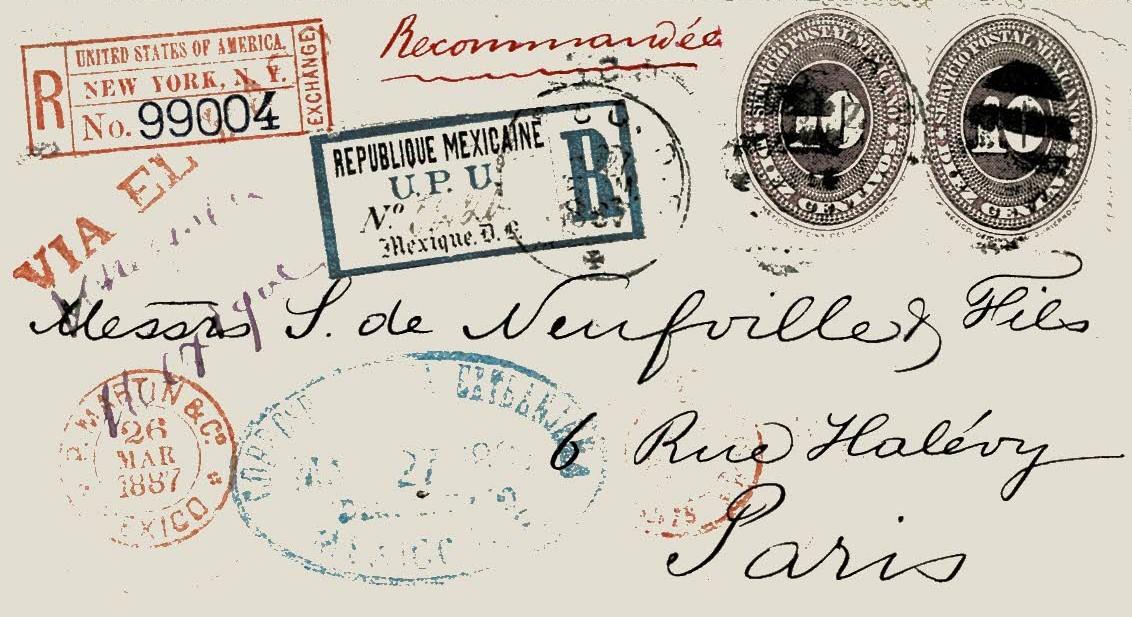 UNITED STATES OF AMERICA.
R
NEW YORK, N. Y.
No. 99004
EXCHANGE
Recommandée
SERVICIO POSTAL MEXICANO
10
DIEZ CENTAVOS
SERVICIO POSTAL MEXICANO
10
DIEZ CENTAVOS
REPUBLIQUE MEXICAINE
U. P. U.
R
Nº
Mexique. D. F.
VIA EL
Messrs S. de Neufville & Fils
6 Rue Halévy
Paris
MARTIN & Cº
26
MAR
1887
MEXICO
27
MEXICO